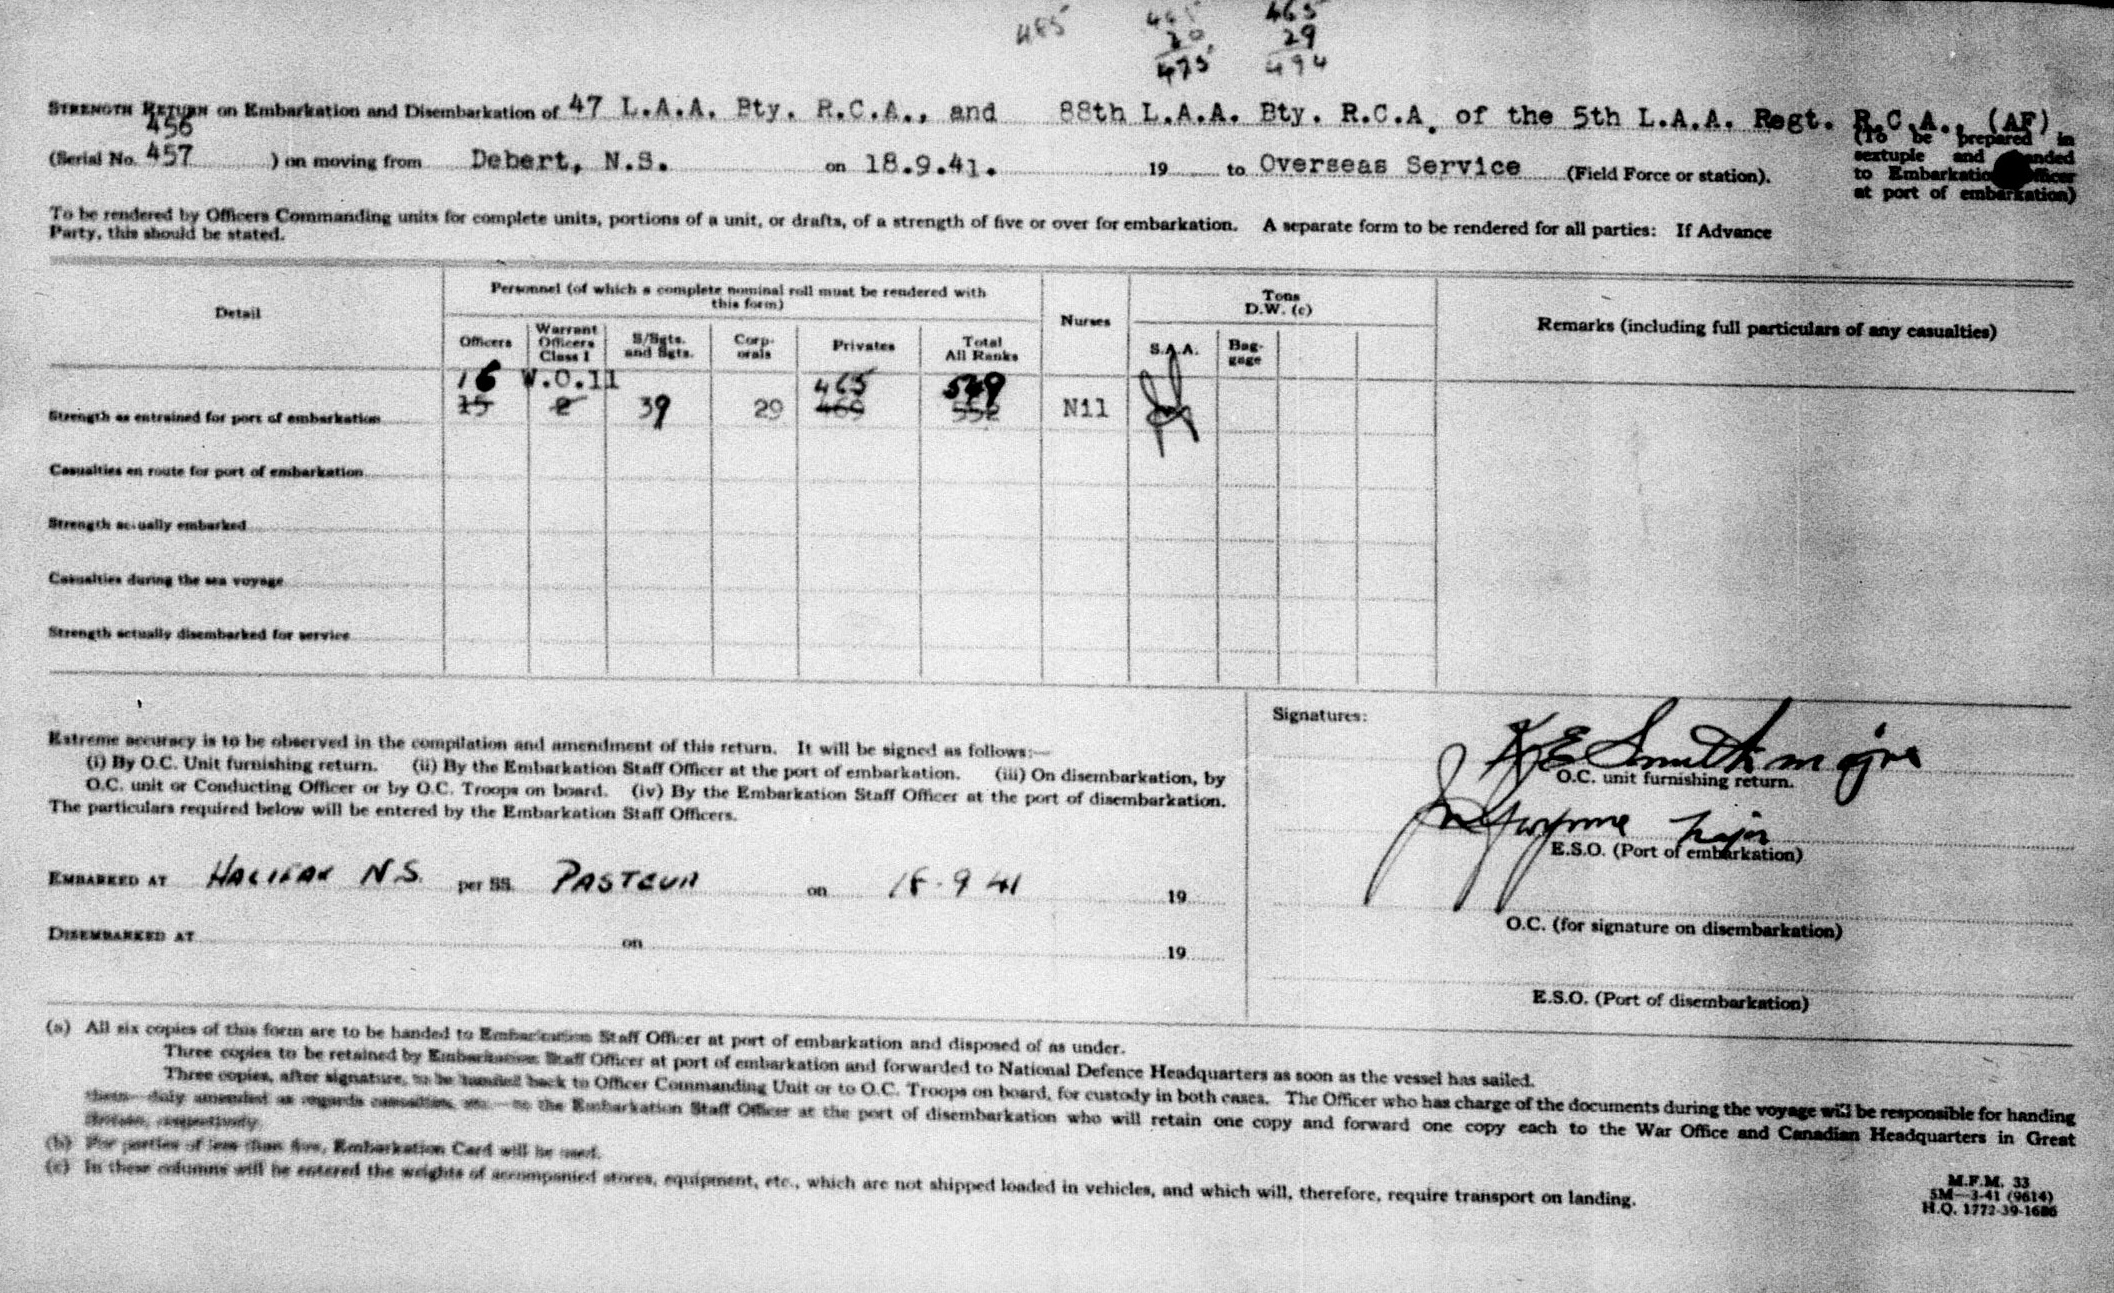 485 465 465
20 29
475 494
STRENGTH RETURN on Embarkation and Disembarkation of 47 L.A.A. Bty. R.C.A., and 88th L.A.A. Bty. R.C.A. of the 5th L.A.A. Regt. R.C.A., (AF)
456
(Serial No. 457 ) on moving from Debert, N.S. on 18.9.41. 19 to Overseas Service (Field Force or station).
(To be prepared in
sextuple and handed
to Embarkation Officer
at port of embarkation)
To be rendered by Officers Commanding units for complete units, portions of a unit, or drafts, of a strength of five or over for embarkation. A separate form to be rendered for all parties: If Advance
Party, this should be stated.
Detail
Personnel (of which a complete nominal roll must be rendered with
this form)
Nurses
Tons
D.W. (c)
Remarks (including full particulars of any casualties)
Officers
Warrant
Officers
Class I
S/Sgts.
and Sgts.
Corp-
orals
Privates
Total
All Ranks
S.A.A.
Bag-
gage
16 W.O.11 465 549
Strength as entrained for port of embarkation 15 2 39 29 469 552 Nil
Casualties en route for port of embarkation
Strength actually embarked
Casualties during the sea voyage
Strength actually disembarked for service
Extreme accuracy is to be observed in the compilation and amendment of this return. It will be signed as follows:—
(i) By O.C. Unit furnishing return. (ii) By the Embarkation Staff Officer at the port of embarkation. (iii) On disembarkation, by
O.C. unit or Conducting Officer or by O.C. Troops on board. (iv) By the Embarkation Staff Officer at the port of disembarkation.
The particulars required below will be entered by the Embarkation Staff Officers.
EMBARKED AT HALIFAX N.S. per SS. PASTEUR on 18.9 41 19
DISEMBARKED AT on 19
Signatures:
K E Smith major
O.C. unit furnishing return.
Major
E.S.O. (Port of embarkation)
O.C. (for signature on disembarkation)
E.S.O. (Port of disembarkation)
(a) All six copies of this form are to be handed to Embarkation Staff Officer at port of embarkation and disposed of as under.
Three copies to be retained by Embarkation Staff Officer at port of embarkation and forwarded to National Defence Headquarters as soon as the vessel has sailed.
Three copies, after signature, to be handed back to Officer Commanding Unit or to O.C. Troops on board, for custody in both cases. The Officer who has charge of the documents during the voyage will be responsible for handing
them duly amended as regards casualties, etc. to the Embarkation Staff Officer at the port of disembarkation who will retain one copy and forward one copy each to the War Office and Canadian Headquarters in Great
Britain, respectively.
(b) For parties of less than five, Embarkation Card will be used.
(c) In these columns will be entered the weights of accompanied stores, equipment, etc., which are not shipped loaded in vehicles, and which will, therefore, require transport on landing.
M.F.M. 33
5M—3-41 (9614)
H.Q. 1772-39-1686